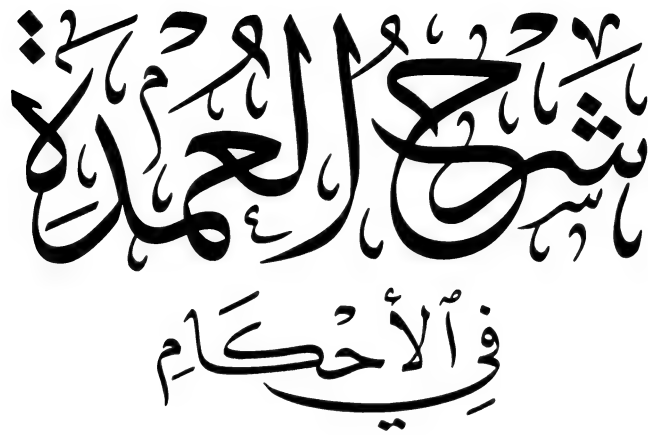 شرح العمدة
في الأحكام